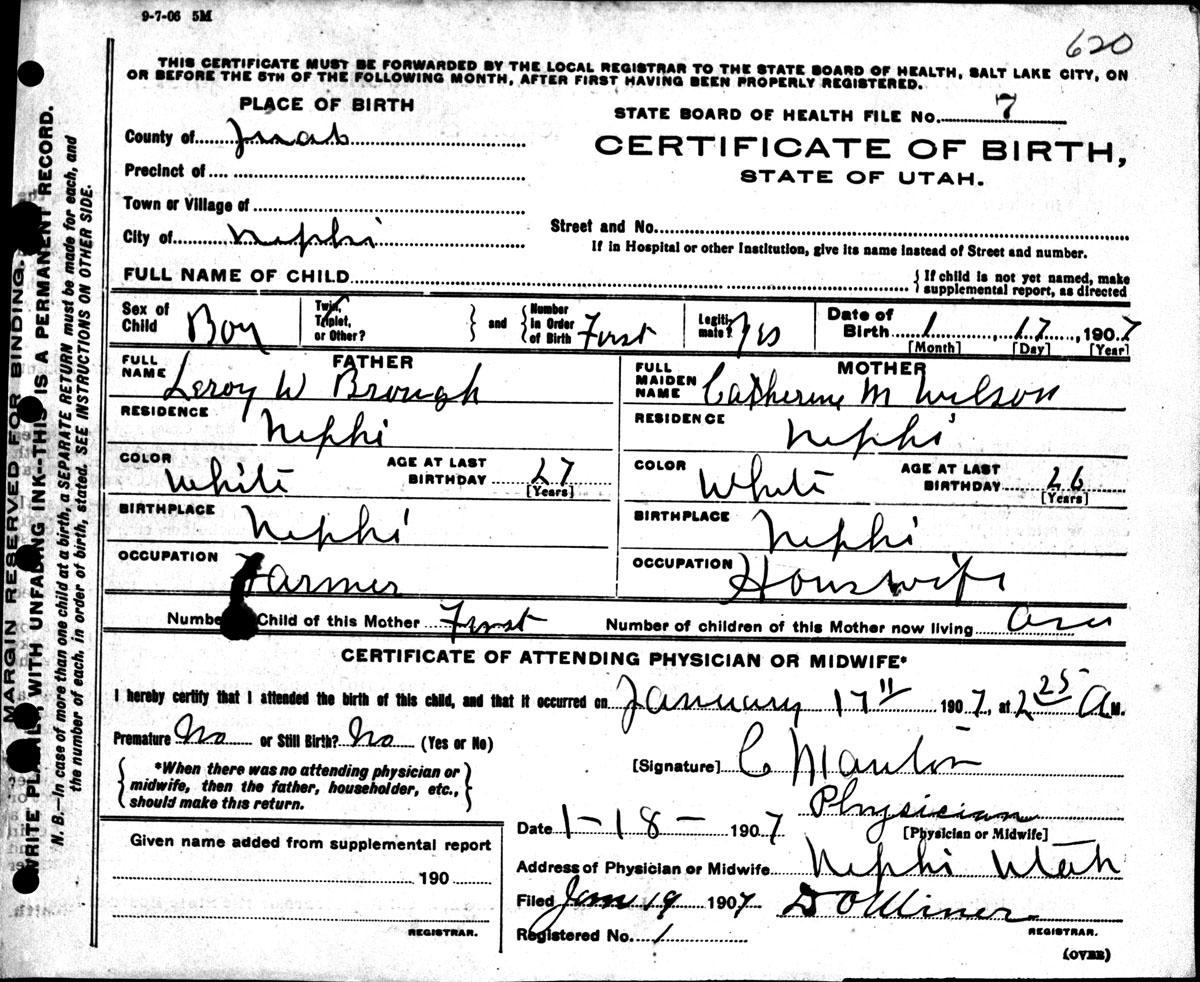 9-7-06 5M
620
THIS CERTIFICATE MUST BE FORWARDED BY THE LOCAL REGISTRAR TO THE STATE BOARD OF HEALTH, SALT LAKE CITY, ON
OR BEFORE THE 5TH OF THE FOLLOWING MONTH, AFTER FIRST HAVING BEEN PROPERLY REGISTERED.
PLACE OF BIRTH
STATE BOARD OF HEALTH FILE No. 7
County of Juab
CERTIFICATE OF BIRTH,
Precinct of
STATE OF UTAH.
Town or Village of
Street and No.
City of Nephi
If in Hospital or other Institution, give its name instead of Street and number.
FULL NAME OF CHILD
{ If child is not yet named, make
supplemental report, as directed
Sex of Child Boy
Twin, Triplet, or Other?
} and { Number in Order of Birth First
Legitimate? Yes
Date of Birth 1, 17, 1907
[Month] [Day] [Year]
FATHER
FULL NAME Leroy W Brough
MOTHER
FULL MAIDEN NAME Catherine M Wilson
RESIDENCE Nephi
RESIDENCE Nephi
COLOR White AGE AT LAST BIRTHDAY 27 [Years]
COLOR White AGE AT LAST BIRTHDAY 26 [Years]
BIRTHPLACE Nephi
BIRTHPLACE Nephi
OCCUPATION Farmer
OCCUPATION Houswife
Number Child of this Mother First Number of children of this Mother now living
CERTIFICATE OF ATTENDING PHYSICIAN OR MIDWIFE*
I hereby certify that I attended the birth of this child, and that it occurred on January 17" 1907, at 2 25 A M.
Premature No or Still Birth? No (Yes or No)
*When there was no attending physician or
midwife, then the father, householder, etc.,
should make this return.
[Signature] C
Physician
[Physician or Midwife]
Date 1-18- 1907
Given name added from supplemental report
190
REGISTRAR.
Address of Physician or Midwife Nephi Utah
Filed Jan 19 1907 D O Miner
REGISTRAR.
Registered No. 1
(OVER)
MARGIN RESERVED FOR BINDING.
WRITE PLAINLY, WITH UNFADING INK--THIS IS A PERMANENT RECORD.
N. B.—In case of more than one child at a birth, a SEPARATE RETURN must be made for each, and
the number of each, in order of birth, stated. SEE INSTRUCTIONS ON OTHER SIDE.